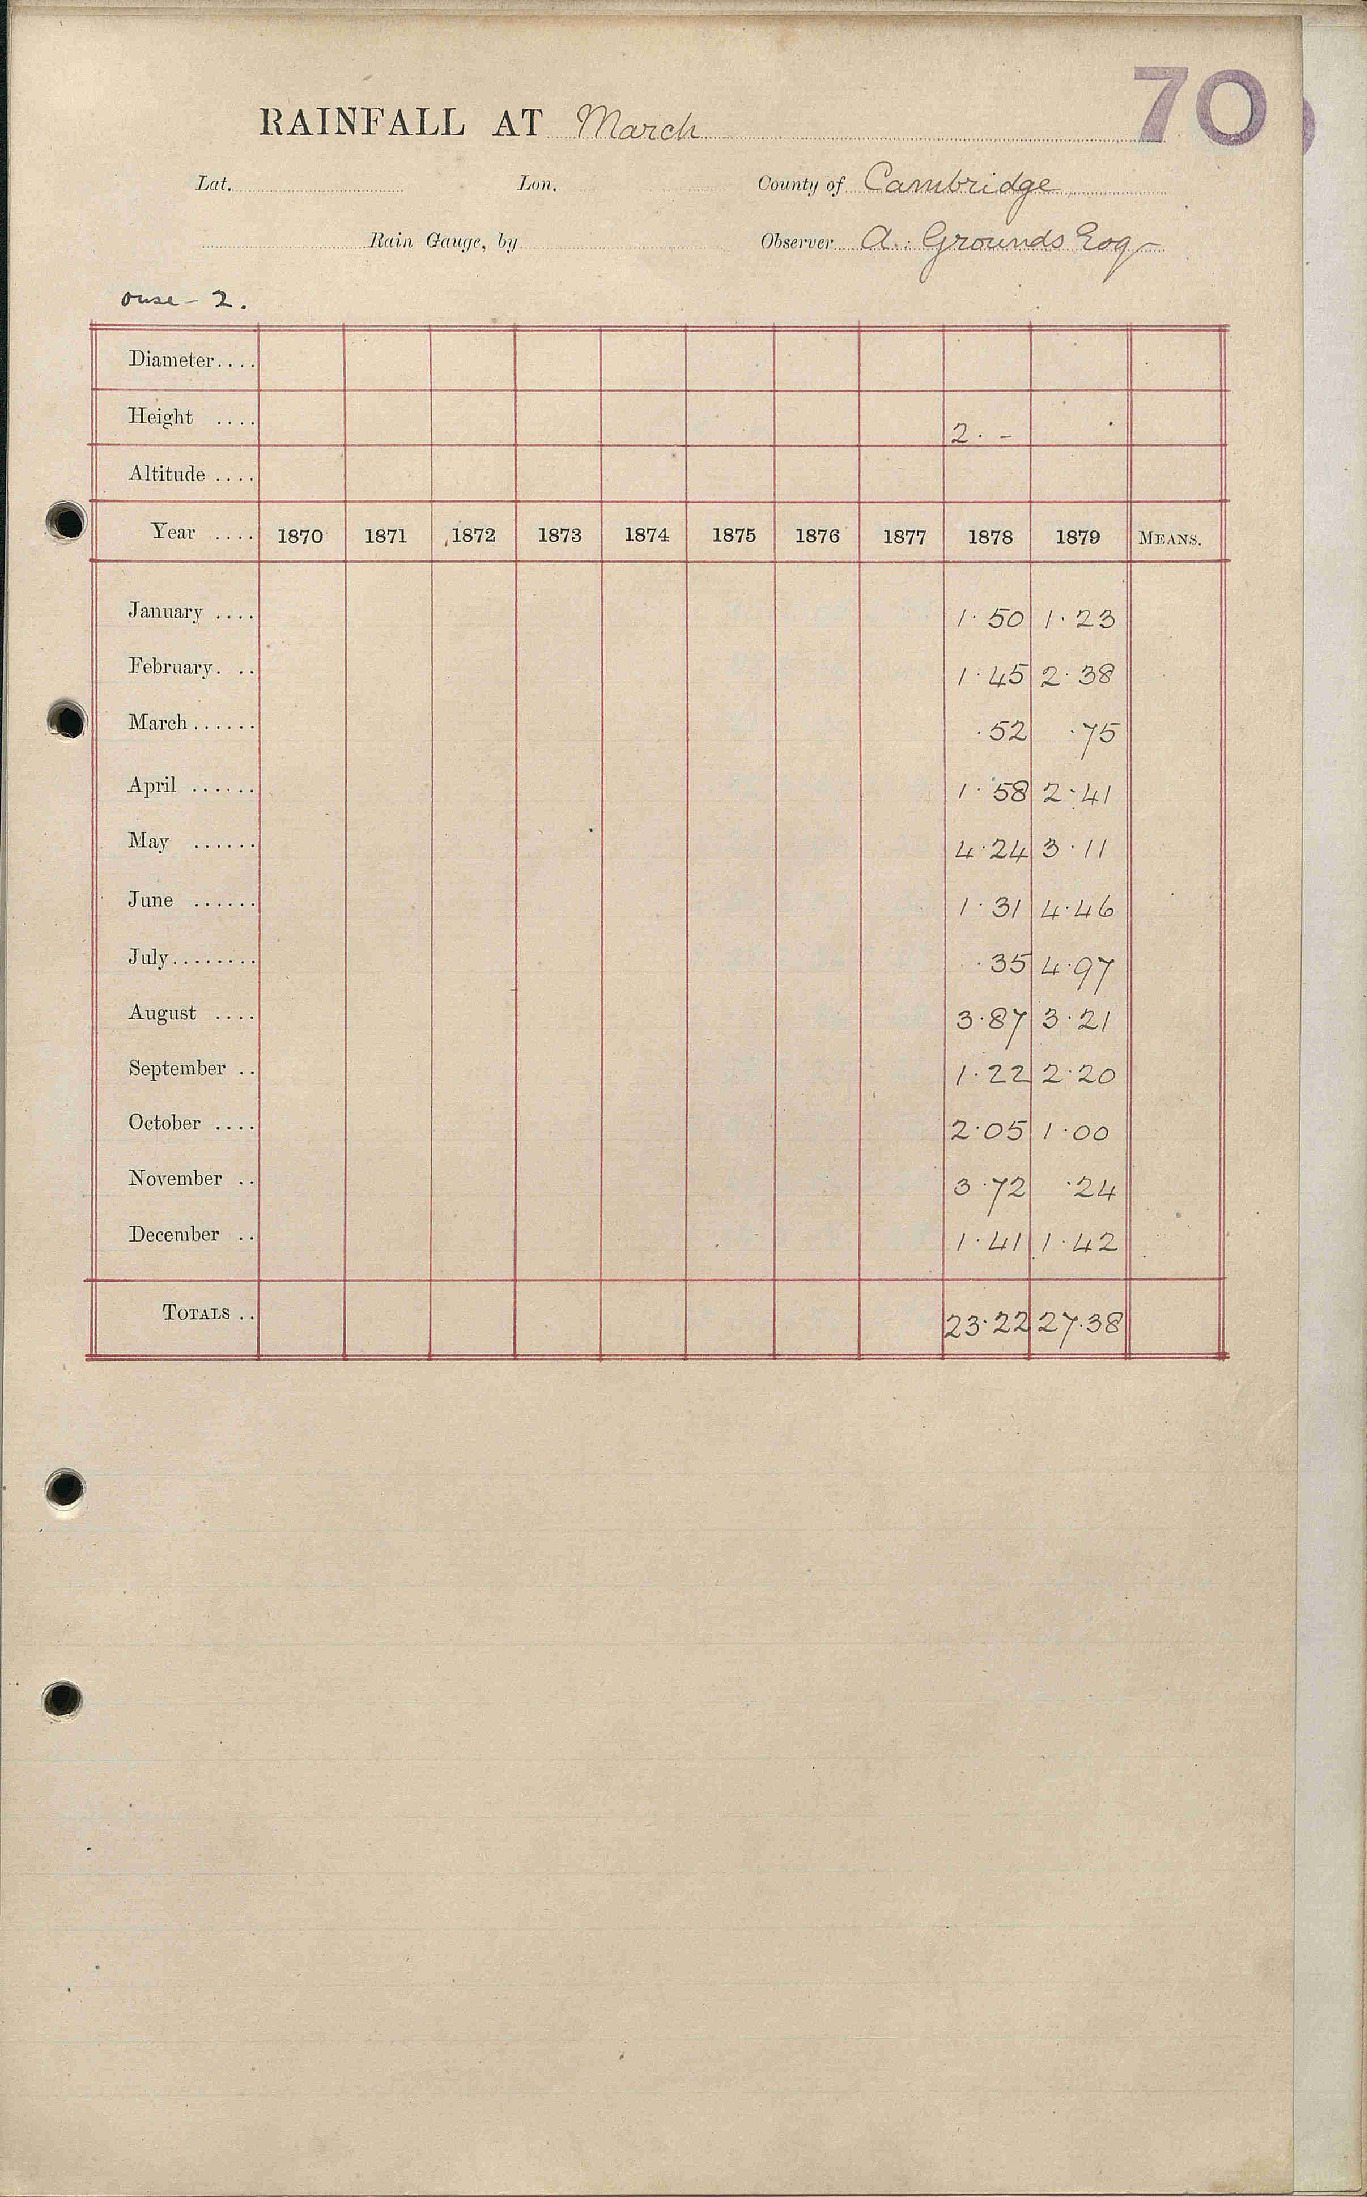 70
RAINFALL AT March
Lat. Lon. County of Cambridge
Rain Gauge, by Observer A. Grounds Esq
Ouse - 2.
Diameter....
Height .... 2. -
Altitude ....
Year .... 1870 1871 1872 1873 1874 1875 1876 1877 1878 1879 MEANS.
January .... 1.50 1.23
February. .. 1.45 2.38
March...... .52 .75
April ...... 1.58 2.41
May ...... 4.24 3.11
June ...... 1.31 4.46
July........ .35 4.97
August .... 3.87 3.21
September .. 1.22 2.20
October .... 2.05 1.00
November .. 3.72 .24
December .. 1.41 1.42
TOTALS .. 23.22 27.38